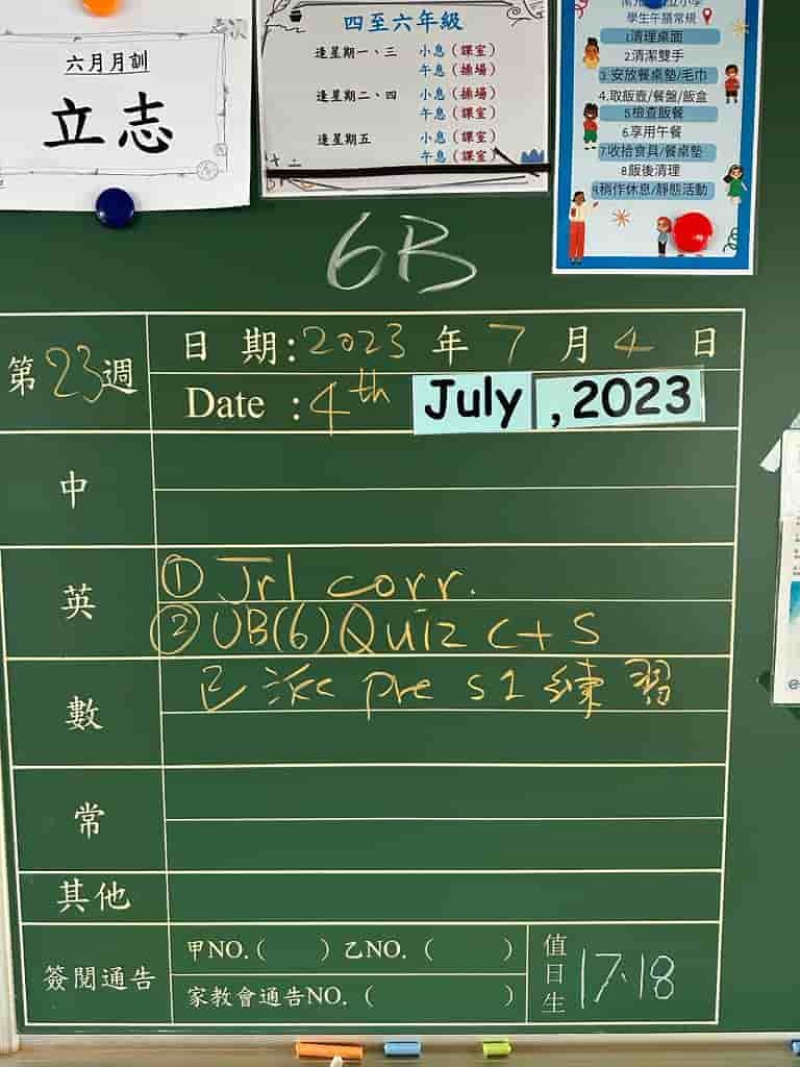 六月月訓
立志
四至六年級
逢星期一、三 小息（課室）
午息（操場）
逢星期二、四 小息（操場）
午息（課室）
逢星期五 小息（課室）
午息（課室）
學生午膳常規
1.清理桌面
2.清潔雙手
3.安放餐桌墊/毛巾
4.取飯壺/餐盤/飯盒
5檢查飯餐
6.享用午餐
7.收拾食具/餐桌墊
8.飯後清理
9.稍作休息/靜態活動
6B
第23週
日 期:2023 年 7 月 4 日
Date :4th July , 2023
中
英
① Jrl corr.
② UB(6) Quiz C+S
數
已派 pre S1 練習
常
其他
簽閱通告
甲NO.( ) 乙NO. ( )
家教會通告NO. ( )
值日生 17、18